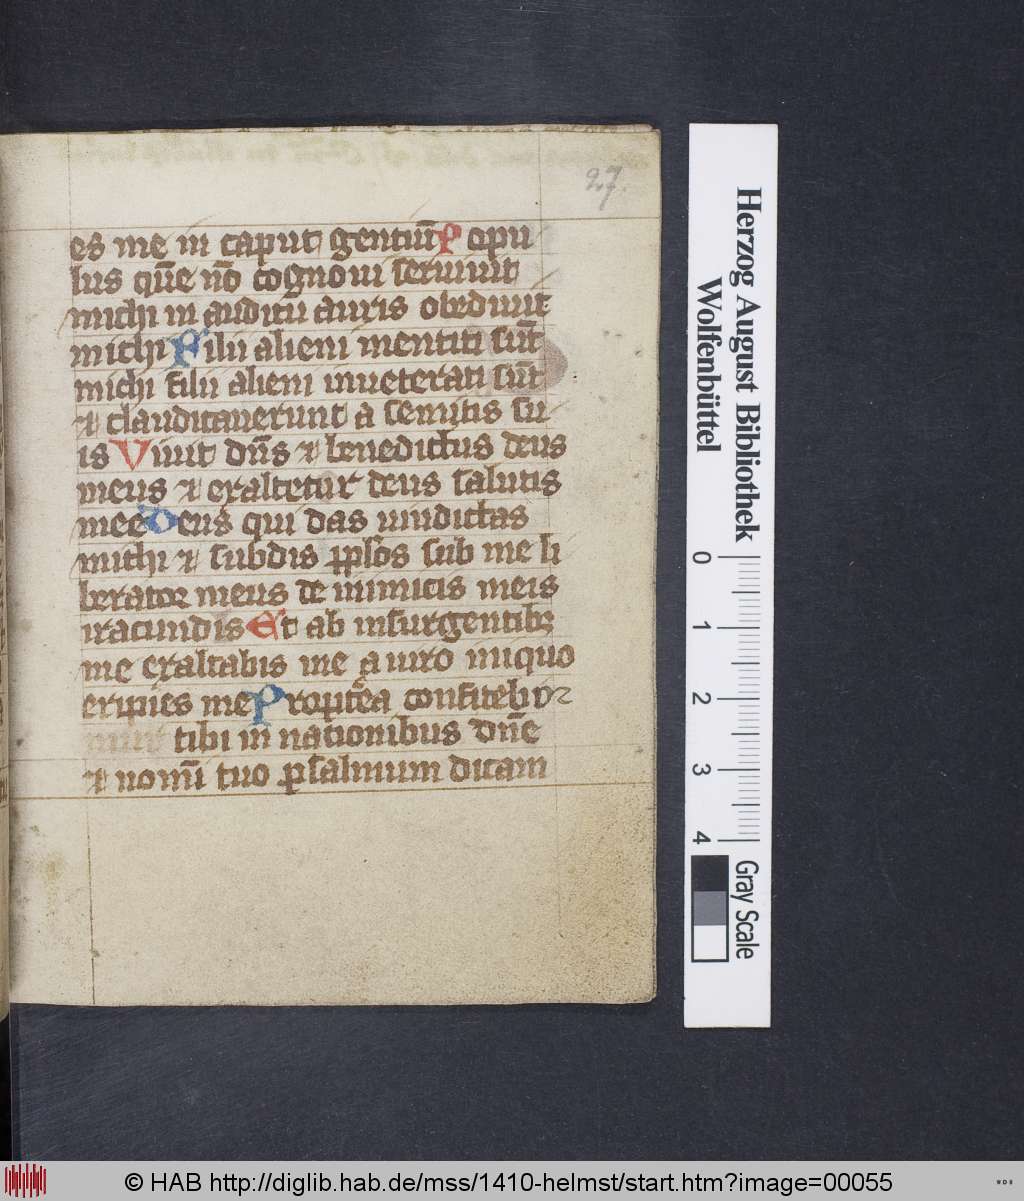 27.
es me in caput gentiū P opu
lus quē nō cognoui seruiuit
michi in auditu auris obediuit
michi Filii alieni mentiti sūt
michi filii alieni inueterati sūt
⁊ claudicauerunt a semitis su
is Viuit dn̄s ⁊ benedictus deus
meus ⁊ exaltetur deus salutis
mee Deus qui das uindictas
michi ⁊ subdis pp̄los sub me li
berator meus de inimicis meis
iracundis Et ab insurgentibꝫ
me exaltabis me a uiro iniquo
eripies me Propt̄ea confitebor
tibi in nationibus dn̄e
⁊ nom̄i tuo psalmum dicam
Herzog August Bibliothek
Wolfenbüttel
0 1 2 3 4
Gray Scale
© HAB http://diglib.hab.de/mss/1410-helmst/start.htm?image=00055